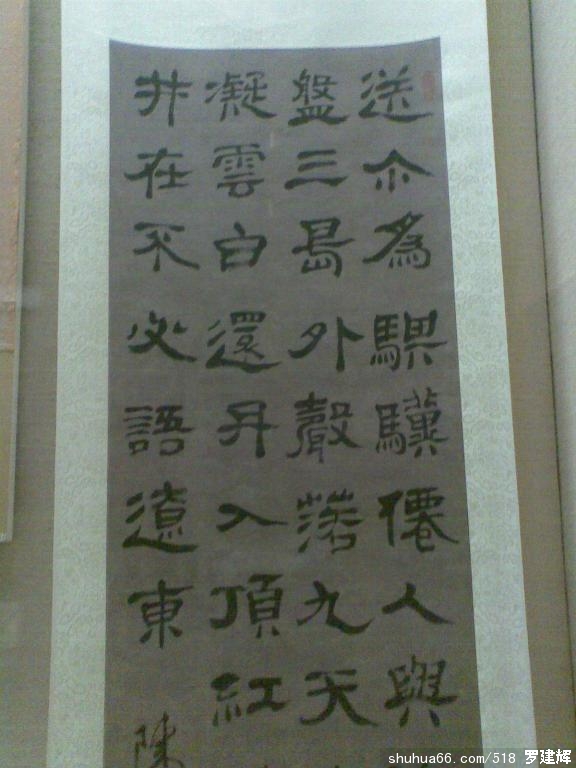 送尒為騏驥僊人與
盤三島外聲落九天
凝雲白還丹入頂紅
井在不必語遼東
陳
shuhua66.com/518 罗建辉